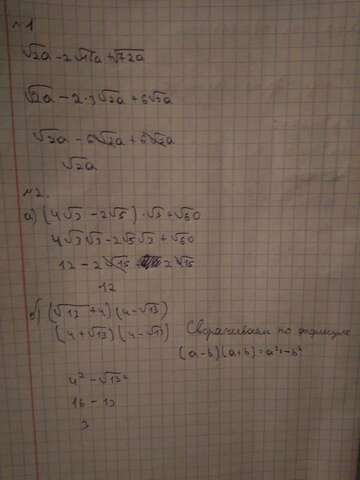 №1
√2a - 2√18a + √72a
√2a - 2·3√2a + 6√2a
√2a - 6√2a + 6√2a
√2a
№2.
а) (4√3 - 2√5)·√3 + √60
4√3√3 - 2√5√3 + √60
12 - 2√15 + 2√15
12
б) (√13 + 4)(4 - √13)
(4 + √13)(4 - √13) Сворачиваем по формуле
(a - b)(a + b) = a² - b²
4² - √13²
16 - 13
3